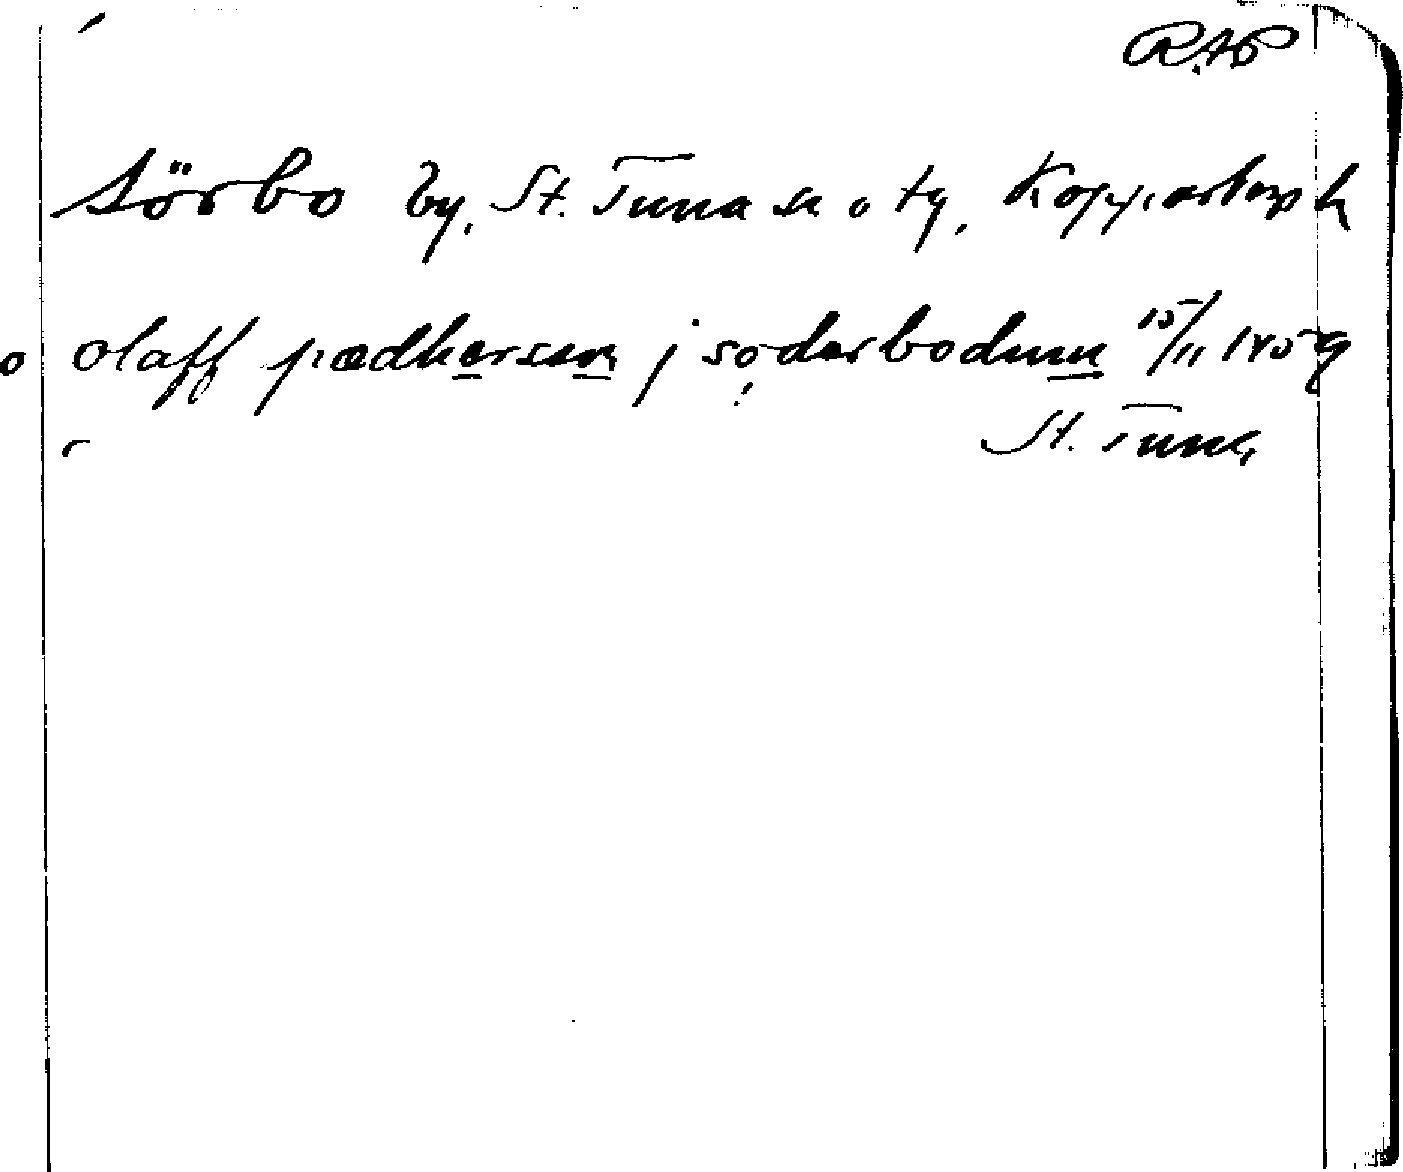 RAP
Sörbo by, St. Tuna sn o tg, Kopparbergs l
o olaff pædherson j söderbodum 15/11 1459
St. Tuna